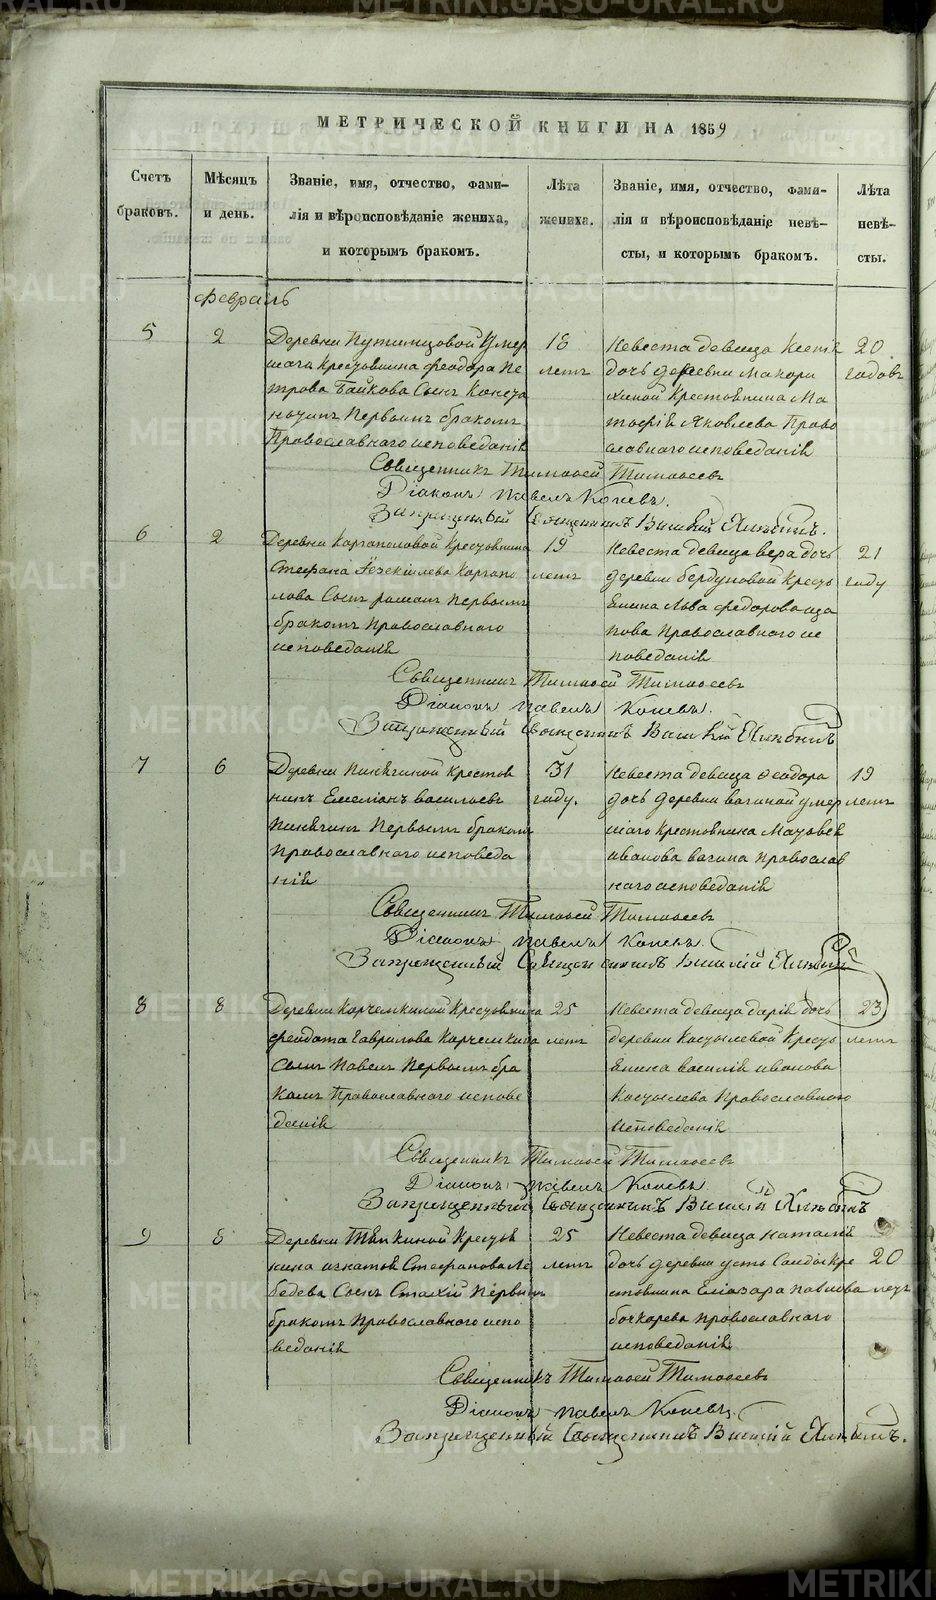 МЕТРИЧЕСКОЙ КНИГИ НА 1859
Счетъ браковъ.
Мѣсяцъ и день.
Званіе, имя, отчество, фами-
лія и вѣроисповѣданіе жениха,
и которымъ бракомъ.
Лѣта жениха.
Званіе, имя, отчество, фами-
лія и вѣроисповѣданіе невѣ-
сты, и которымъ бракомъ.
Лѣта невѣ-
сты.
февраль
5
2
Деревни Путимцовой Умер
шаго Крестовнина феодора Пе
трова Байкова Сынъ
Первымъ бракомъ
Православнаго исповеданія
18
летъ
Невеста девица
дочь деревни Мокру
шиной Крестовнина Ма
Яковлева Право
славнаго исповеданія
20
годовъ
Священникъ Тимофей Тимофеевъ
Діаконъ Павелъ Коневъ.
Запрещенный Священникъ
6
2
Деревни Каргаполовой Крестовнина
Стефана Іезекіилева Каргапо
лова Сынъ романъ Первымъ
бракомъ Православнаго
исповеданія
19
летъ
Невеста девица вера дочь
деревни бердуповой Кресть
Енина Льва федорова
Православнаго ис
поведанія
21
году
Священникъ Тимофей Тимофеевъ
Діаконъ Павелъ Коневъ.
Запрещенный Священникъ
7
6
Деревни Пинягиной Крестов
нинъ Емеліанъ васильевъ
Пинягинъ Первымъ бракомъ
Православнаго исповеда
нія
31
году.
Невеста девица феодора
дочь деревни вагиной умер
шаго Крестовнина
иванова вагина Православ
наго исповеданія
19
летъ
Священникъ Тимофей Тимофеевъ
Діаконъ Павелъ Коневъ.
Запрещенный Священникъ
8
8
Деревни Корчемкиной Крестовнина
Гаврилова Корчемкина
Сынъ Павелъ Первымъ бра
комъ Православнаго испове
данія
25
летъ
Невеста девица дарія дочь
деревни Костылевой Кресть
Енина василія иванова
Костылева Православнаго
исповеданія
23
летъ
Священникъ Тимофей Тимофеевъ
Діаконъ Павелъ Коневъ
Запрещенный Священникъ
9
8
Деревни Крестов
нина игнатія Стефанова Ле
бедева Сынъ Первымъ
бракомъ Православнаго испо
веданія
25
летъ
Невеста девица наталія
дочь деревни усть Кре
стовнина Еліазара павлова
бочкарева Православнаго
исповеданія
20
летъ
Священникъ Тимофей Тимофеевъ
Діаконъ Павелъ Коневъ
Запрещенный Священникъ
METRIKI.GASO-URAL.RU